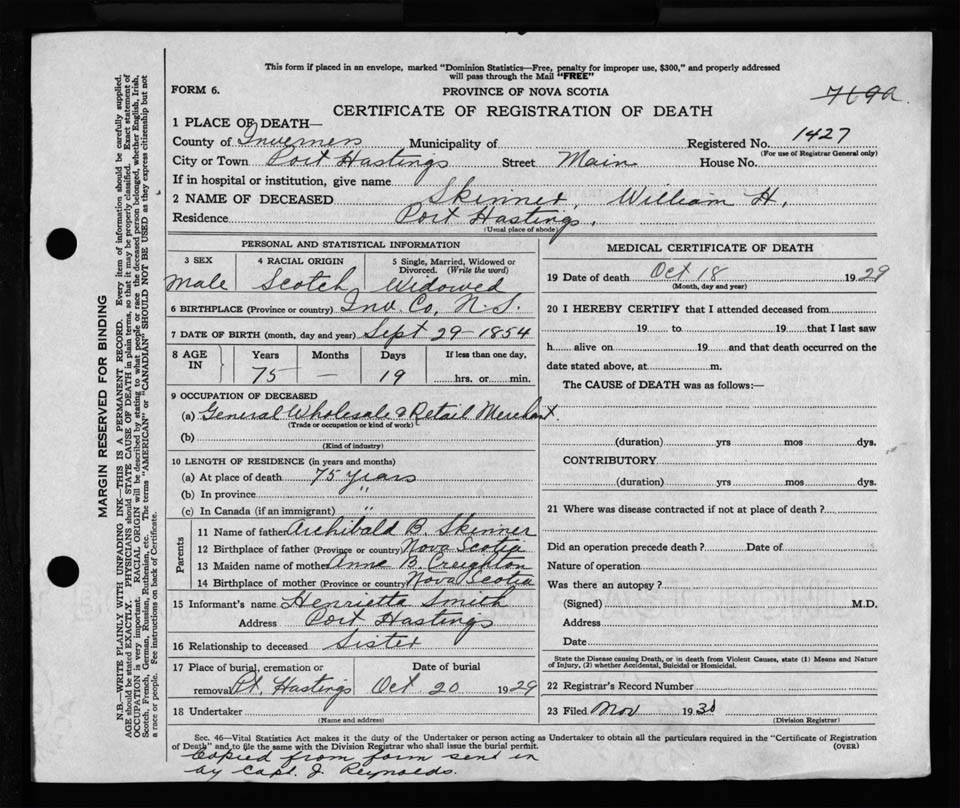 This form if placed in an envelope, marked "Dominion Statistics—Free, penalty for improper use, $300," and properly addressed
will pass through the Mail "FREE"
FORM 6.
PROVINCE OF NOVA SCOTIA
769a
CERTIFICATE OF REGISTRATION OF DEATH
1 PLACE OF DEATH—
County of Inverness Municipality of Registered No. 1427
(For use of Registrar General only)
City or Town Port Hastings Street Main House No.
If in hospital or institution, give name
2 NAME OF DECEASED Skinner, William H.
Residence Port Hastings.
(Usual place of abode)
PERSONAL AND STATISTICAL INFORMATION
3 SEX 4 RACIAL ORIGIN 5 Single, Married, Widowed or
Divorced. (Write the word)
Male Scotch Widowed
6 BIRTHPLACE (Province or country) Inv. Co, N.S.
7 DATE OF BIRTH (month, day and year) Sept 29-1854
8 AGE IN Years Months Days If less than one day,
75 — 19 hrs. or min.
9 OCCUPATION OF DECEASED
(a) General Wholesale & Retail Merchant.
(Trade or occupation or kind of work)
(b)
(Kind of industry)
10 LENGTH OF RESIDENCE (in years and months)
(a) At place of death 75 years
(b) In province "
(c) In Canada (if an immigrant) "
Parents
11 Name of father Archibald B. Skinner
12 Birthplace of father (Province or country) Nova Scotia
13 Maiden name of mother Anne B. Creighton
14 Birthplace of mother (Province or country) Nova Scotia
15 Informant's name Henrietta Smith
Address Port Hastings
16 Relationship to deceased Sister
17 Place of burial, cremation or Date of burial
removal Pt. Hastings Oct 20 1929
18 Undertaker
(Name and address)
MEDICAL CERTIFICATE OF DEATH
19 Date of death Oct 18 1929
(Month, day and year)
20 I HEREBY CERTIFY that I attended deceased from
19 to 19 that I last saw
h alive on 19 and that death occurred on the
date stated above, at m.
The CAUSE of DEATH was as follows:—
(duration) yrs mos dys.
CONTRIBUTORY
(duration) yrs mos dys.
21 Where was disease contracted if not at place of death?
Did an operation precede death? Date of
Nature of operation
Was there an autopsy?
(Signed) M.D.
Address
Date
State the Disease causing Death, or in death from Violent Causes, state (1) Means and Nature
of Injury, (2) whether Accidental, Suicidal or Homicidal.
22 Registrar's Record Number
23 Filed Nov 1930
(Division Registrar)
Sec. 46—Vital Statistics Act makes it the duty of the Undertaker or person acting as Undertaker to obtain all the particulars required in the "Certificate of Registration
of Death" and to file the same with the Division Registrar who shall issue the burial permit.
(OVER)
Copied from form sent in
by Capt. J. Reynolds.
MARGIN RESERVED FOR BINDING
N.B.—WRITE PLAINLY WITH UNFADING INK—THIS IS A PERMANENT RECORD. Every item of information should be carefully supplied.
AGE should be stated EXACTLY. PHYSICIANS should STATE CAUSE OF DEATH in plain terms, so that it may be properly classified. Exact statement of
OCCUPATION is very important. RACIAL ORIGIN will be described by stating to what people or race the deceased person belonged, whether English, Irish,
Scotch, French, German, Russian, Ruthenian, etc. The terms "AMERICAN" or "CANADIAN" SHOULD NOT BE USED as they express citizenship but not
a race or people. See instructions on back of Certificate.